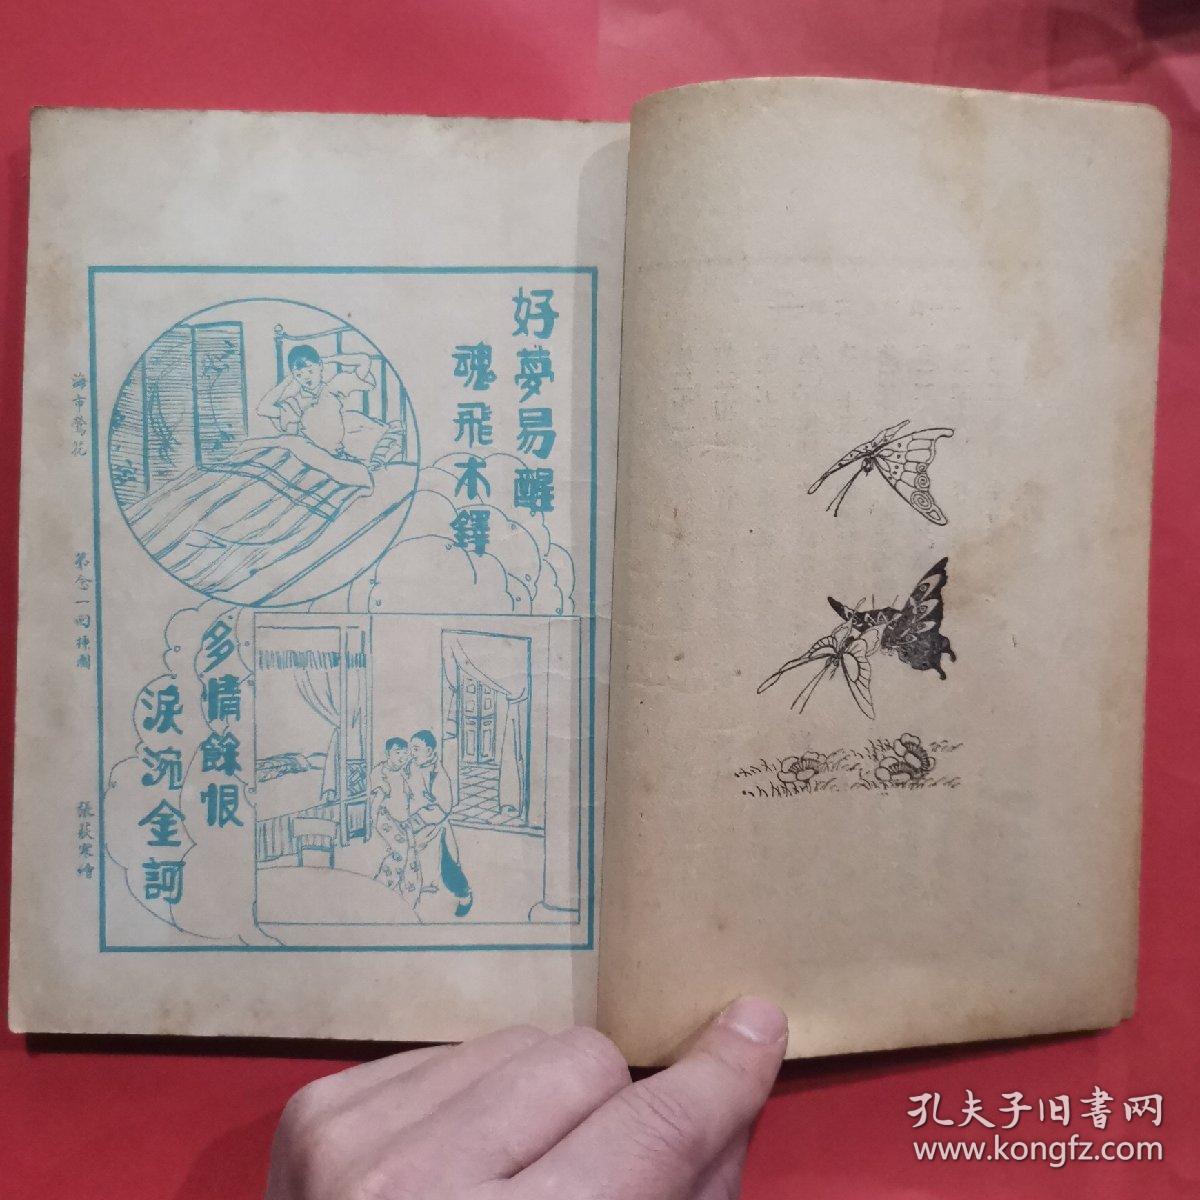 好夢易醒
魂飛木鐸
多情餘恨
淚涴金訶
海市鶯花
第念一回揷圖
張荻寒繪
孔夫子旧書网
www.kongfz.com